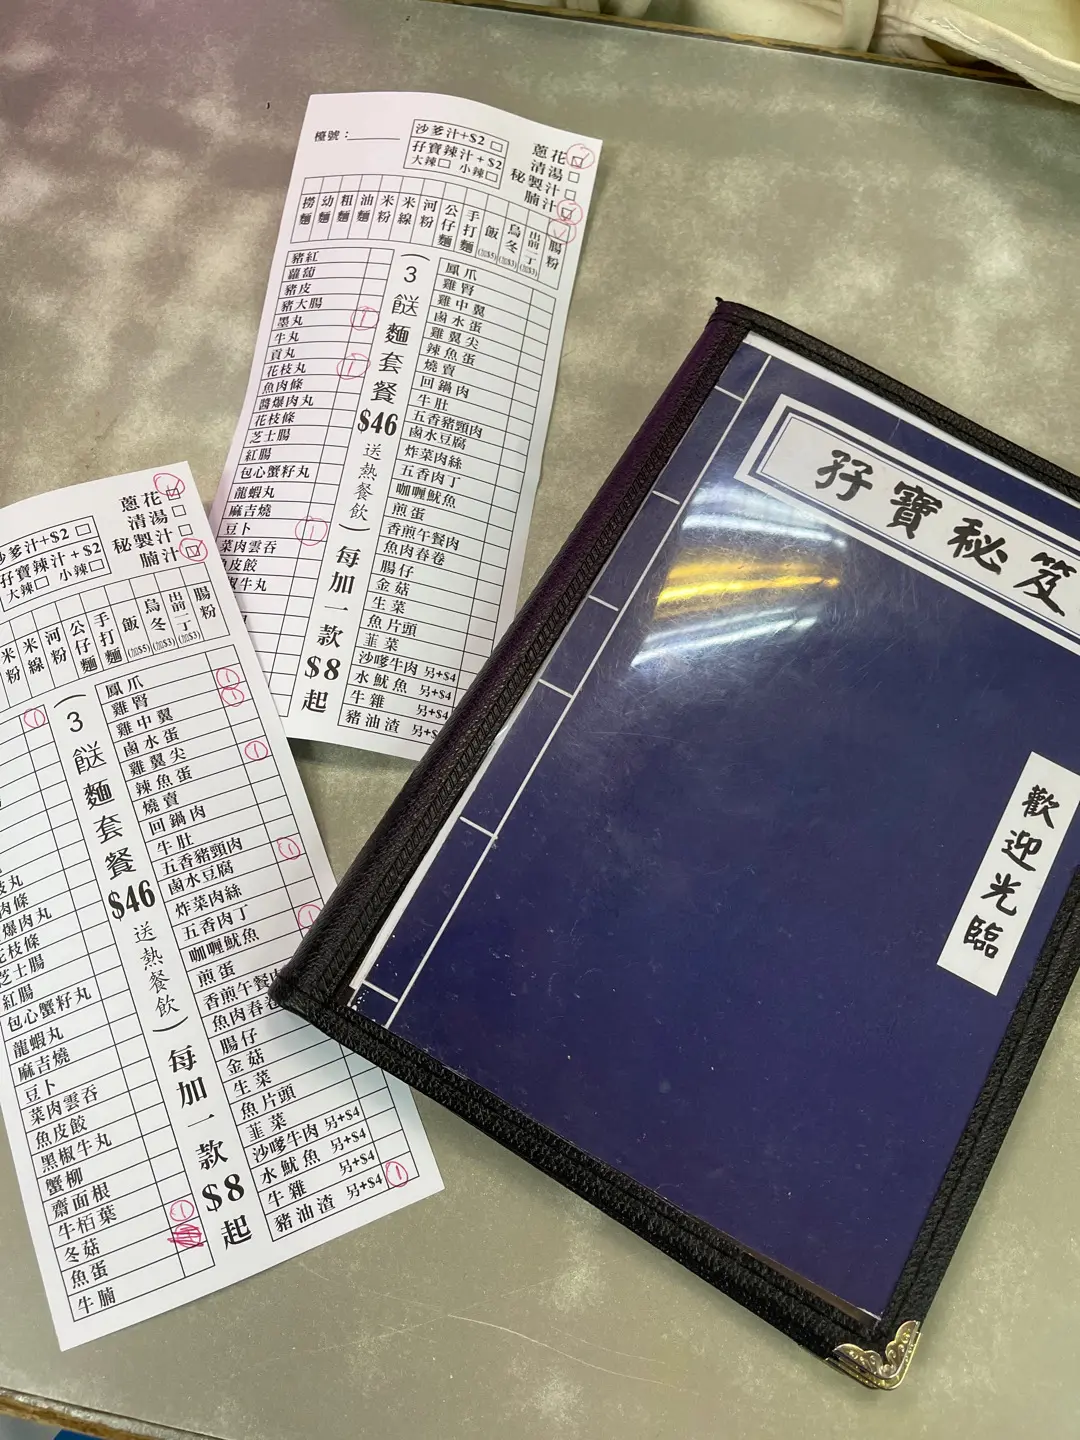 檯號：
沙爹汁+$2
孖寶辣汁+$2
大辣 小辣
蔥花
清湯
秘製汁
腩汁
撈麵
幼麵
粗麵
油麵
米粉
米線
河粉
公仔麵
手打麵
飯(加$5)
烏冬(加$3)
出前一丁(加$3)
腸粉
豬紅
蘿蔔
豬皮
豬大腸
墨丸
牛丸
貢丸
花枝丸
魚肉條
醬爆肉丸
花枝條
芝士腸
紅腸
包心蟹籽丸
龍蝦丸
麻吉燒
豆卜
菜肉雲吞
皮餃
椒牛丸
(3餸麵套餐$46送熱餐飲)每加一款$8起
鳳爪
雞腎
雞中翼
鹵水蛋
雞翼尖
辣魚蛋
燒賣
回鍋肉
牛肚
五香豬頸肉
鹵水豆腐
炸菜肉絲
五香肉丁
咖喱魷魚
煎蛋
香煎午餐肉
魚肉春卷
腸仔
金菇
生菜
魚片頭
韮菜
沙嗲牛肉 另+$4
水魷魚 另+$4
牛雜 另+$4
豬油渣 另+$4
沙爹汁+$2
孖寶辣汁+$2
大辣 小辣
蔥花
清湯
秘製汁
腩汁
米粉
米線
河粉
公仔麵
手打麵
飯(加$5)
烏冬(加$3)
出前一丁(加$3)
腸粉
枝丸
肉條
爆肉丸
花枝條
芝士腸
紅腸
包心蟹籽丸
龍蝦丸
麻吉燒
豆卜
菜肉雲吞
魚皮餃
黑椒牛丸
蟹柳
齋面根
牛栢葉
冬菇
魚蛋
牛腩
(3餸麵套餐$46送熱餐飲)每加一款$8起
鳳爪
雞腎
雞中翼
鹵水蛋
雞翼尖
辣魚蛋
燒賣
回鍋肉
牛肚
五香豬頸肉
鹵水豆腐
炸菜肉絲
五香肉丁
咖喱魷魚
煎蛋
香煎午餐肉
魚肉春卷
腸仔
金菇
生菜
魚片頭
韮菜
沙嗲牛肉 另+$4
水魷魚 另+$4
牛雜 另+$4
豬油渣 另+$4
孖寶秘笈
歡迎光臨